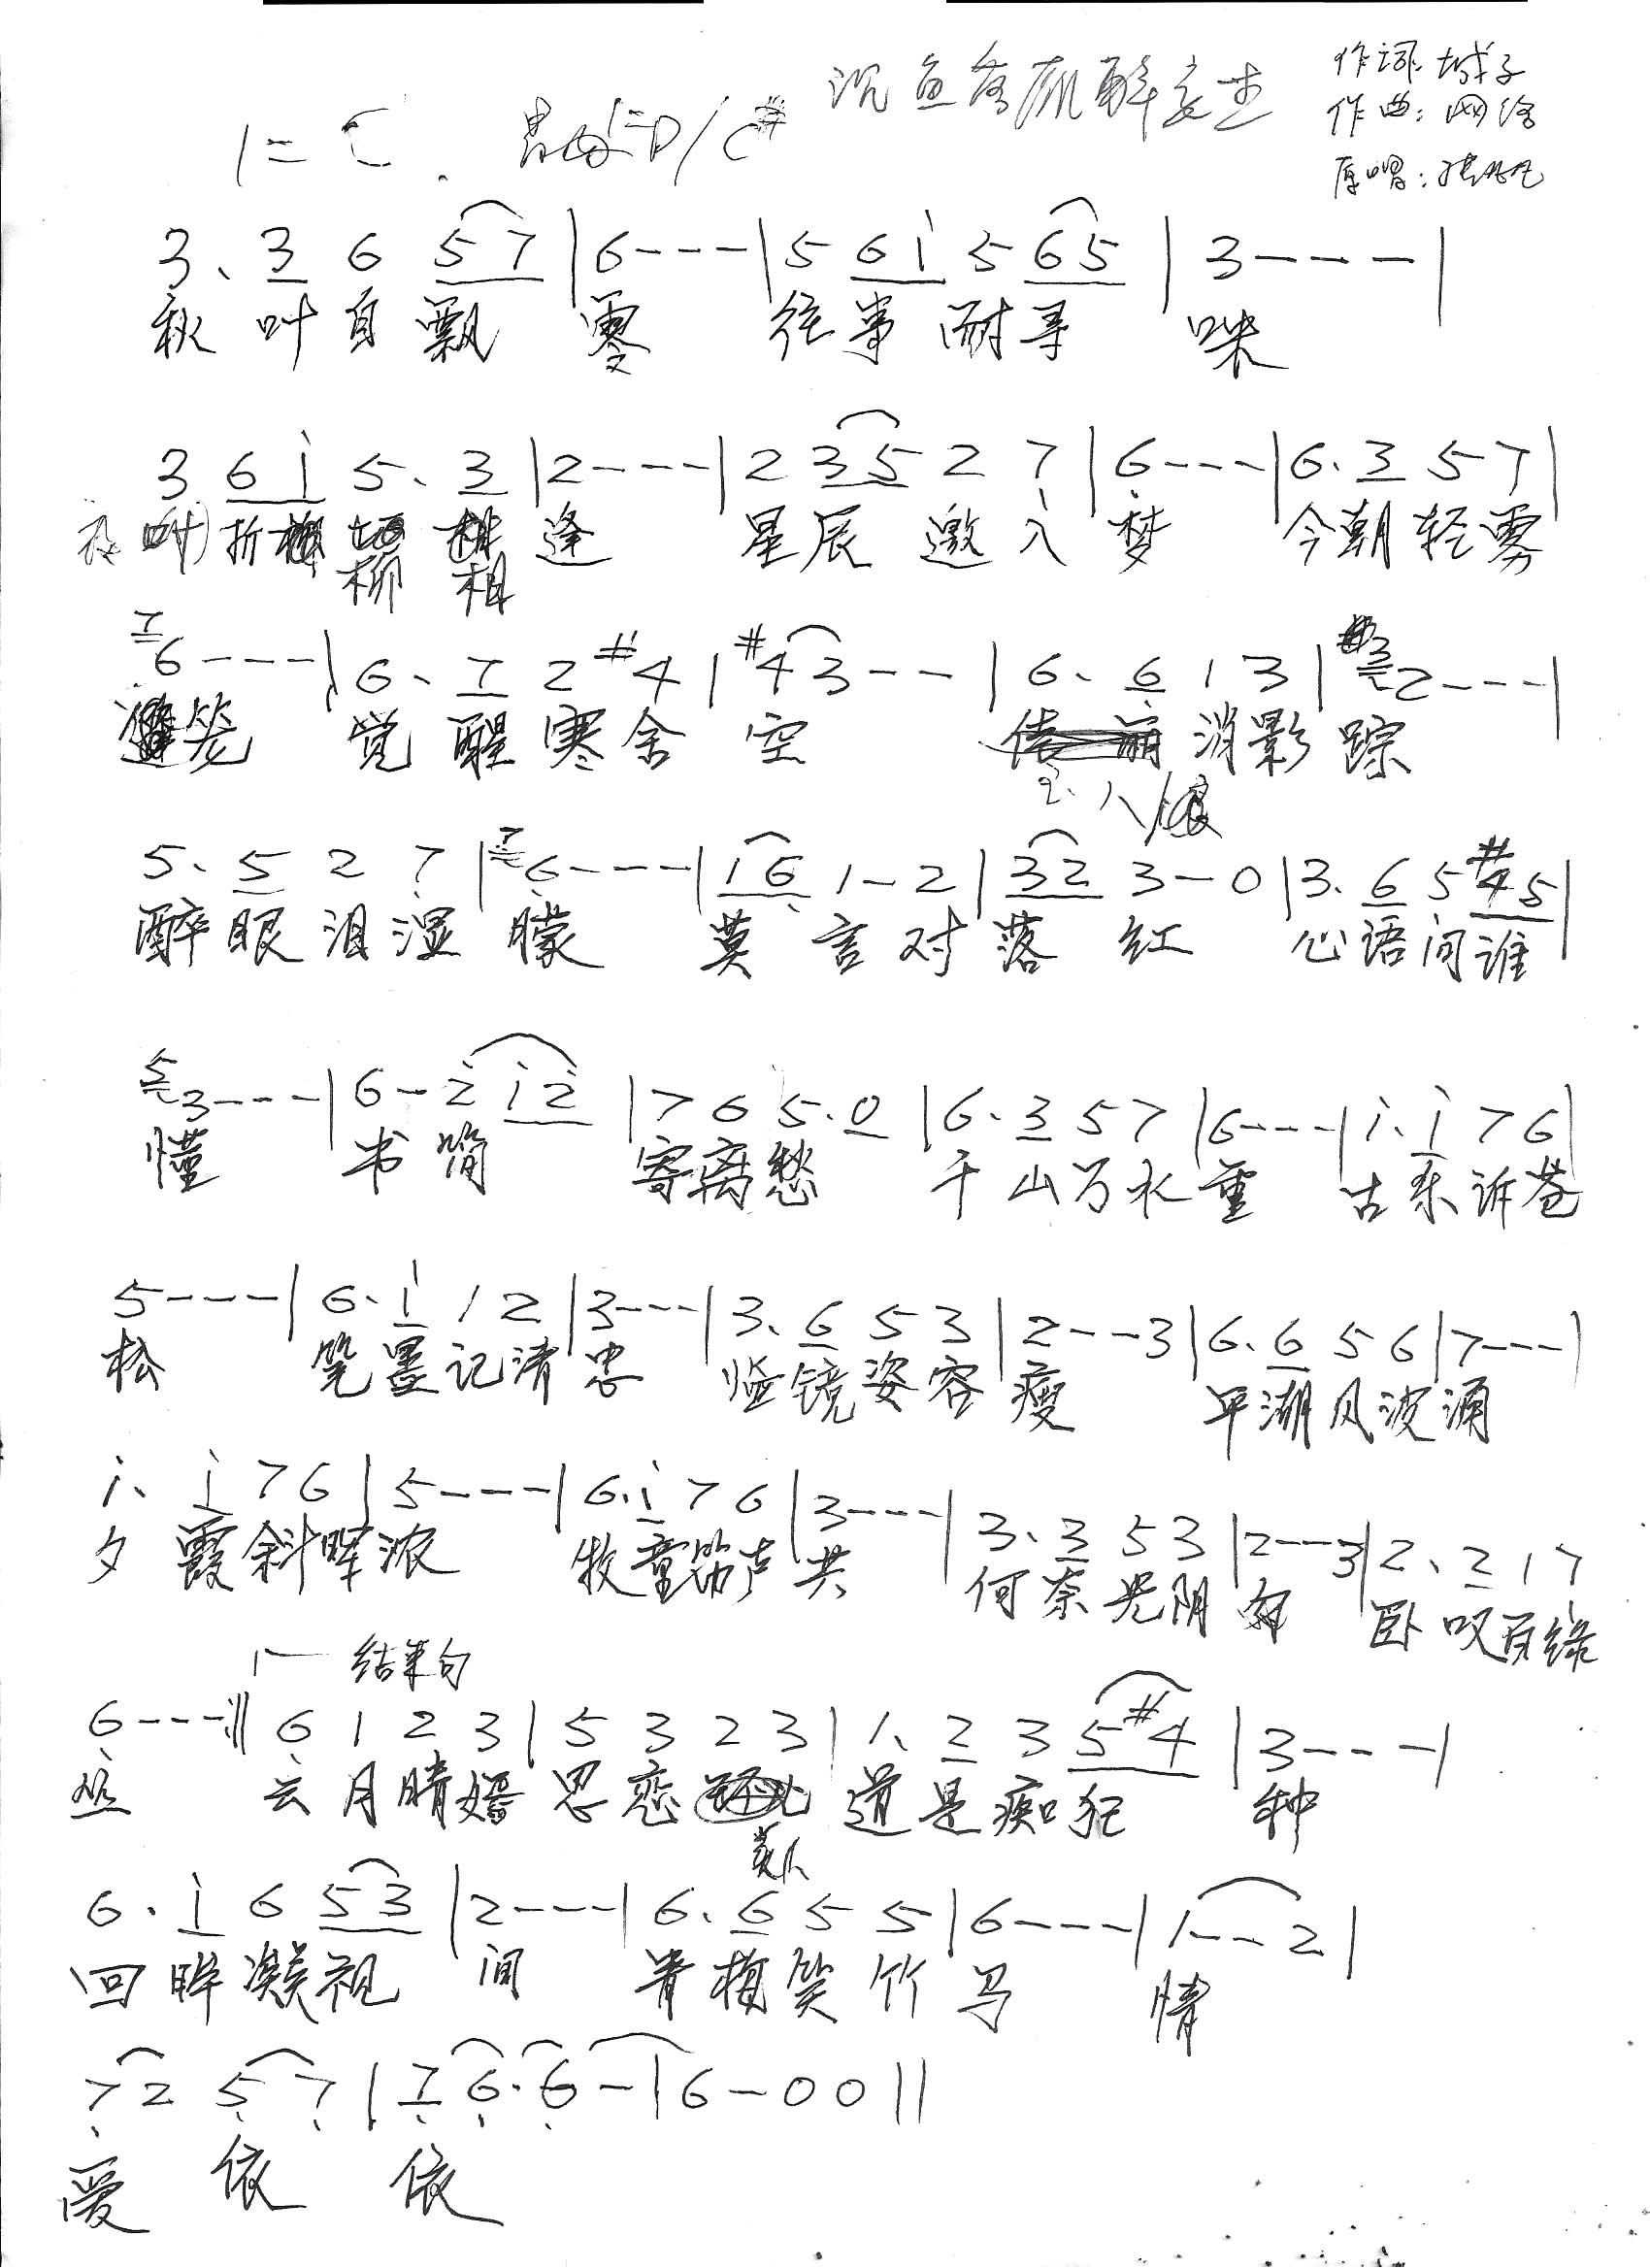 沉鱼落雁醉
作词:城子
作曲:网络
原唱:
1=C
3、3 6 5 7 | 6 - - - | 5 6 i 5 6 5 | 3 - - - |
秋叶自飘零 往事耐寻味
3 6 i 5、3 | 2 - - - | 2 3 5 2 7 | 6 - - - | 6.3 5 7 |
折 柳 相 逢 星辰邀入梦 今朝轻雾
7 6 - - - | 6、7 2 #4 | #4 3 - - | 6、6 1 3 | 3 2 - - - |
笼 觉醒寒舍空 消影踪
5、5 2 7 | 7 6 - - - | 1 6 1 - 2 | 3 2 3 - 0 | 3.6 5 #4 5 |
醉眼泪湿朦 莫言对落红 心语问谁
5 3 - - - | 6 - 2 i 2 | 7 6 5.0 | 6.3 5 7 | 6 - - - | i、i 7 6 |
懂 书简寄离愁 千山万水重 古乐诉苍
5 - - - | 6.i 1 2 | 3 - - - | 3、6 5 3 | 2 - - 3 | 6.6 5 6 | 7 - - - |
松 笔墨记清忠 临镜姿容瘦 平湖风波涌
i、i 7 6 | 5 - - - | 6.i 7 6 | 3 - - - | 3、3 5 3 | 2 - - 3 | 2、2 1 7
夕霞斜晖浓 牧童笛声共 何奈光阴匆 卧叹百缘
结束句
6 - - - :|| 6 1 2 3 | 5 3 2 3 | 1、2 3 5 #4 | 3 - - - |
丝 云月晴嫣思恋 道是痴狂种
美人
6.i 6 5 3 | 2 - - - | 6、6 5 5 | 6 - - - | 1 - - 2 |
回眸凝视间 青梅笑竹马情
7 2 5 7 | 7 6.6 - | 6 - 0 0 ||
爱 依 依